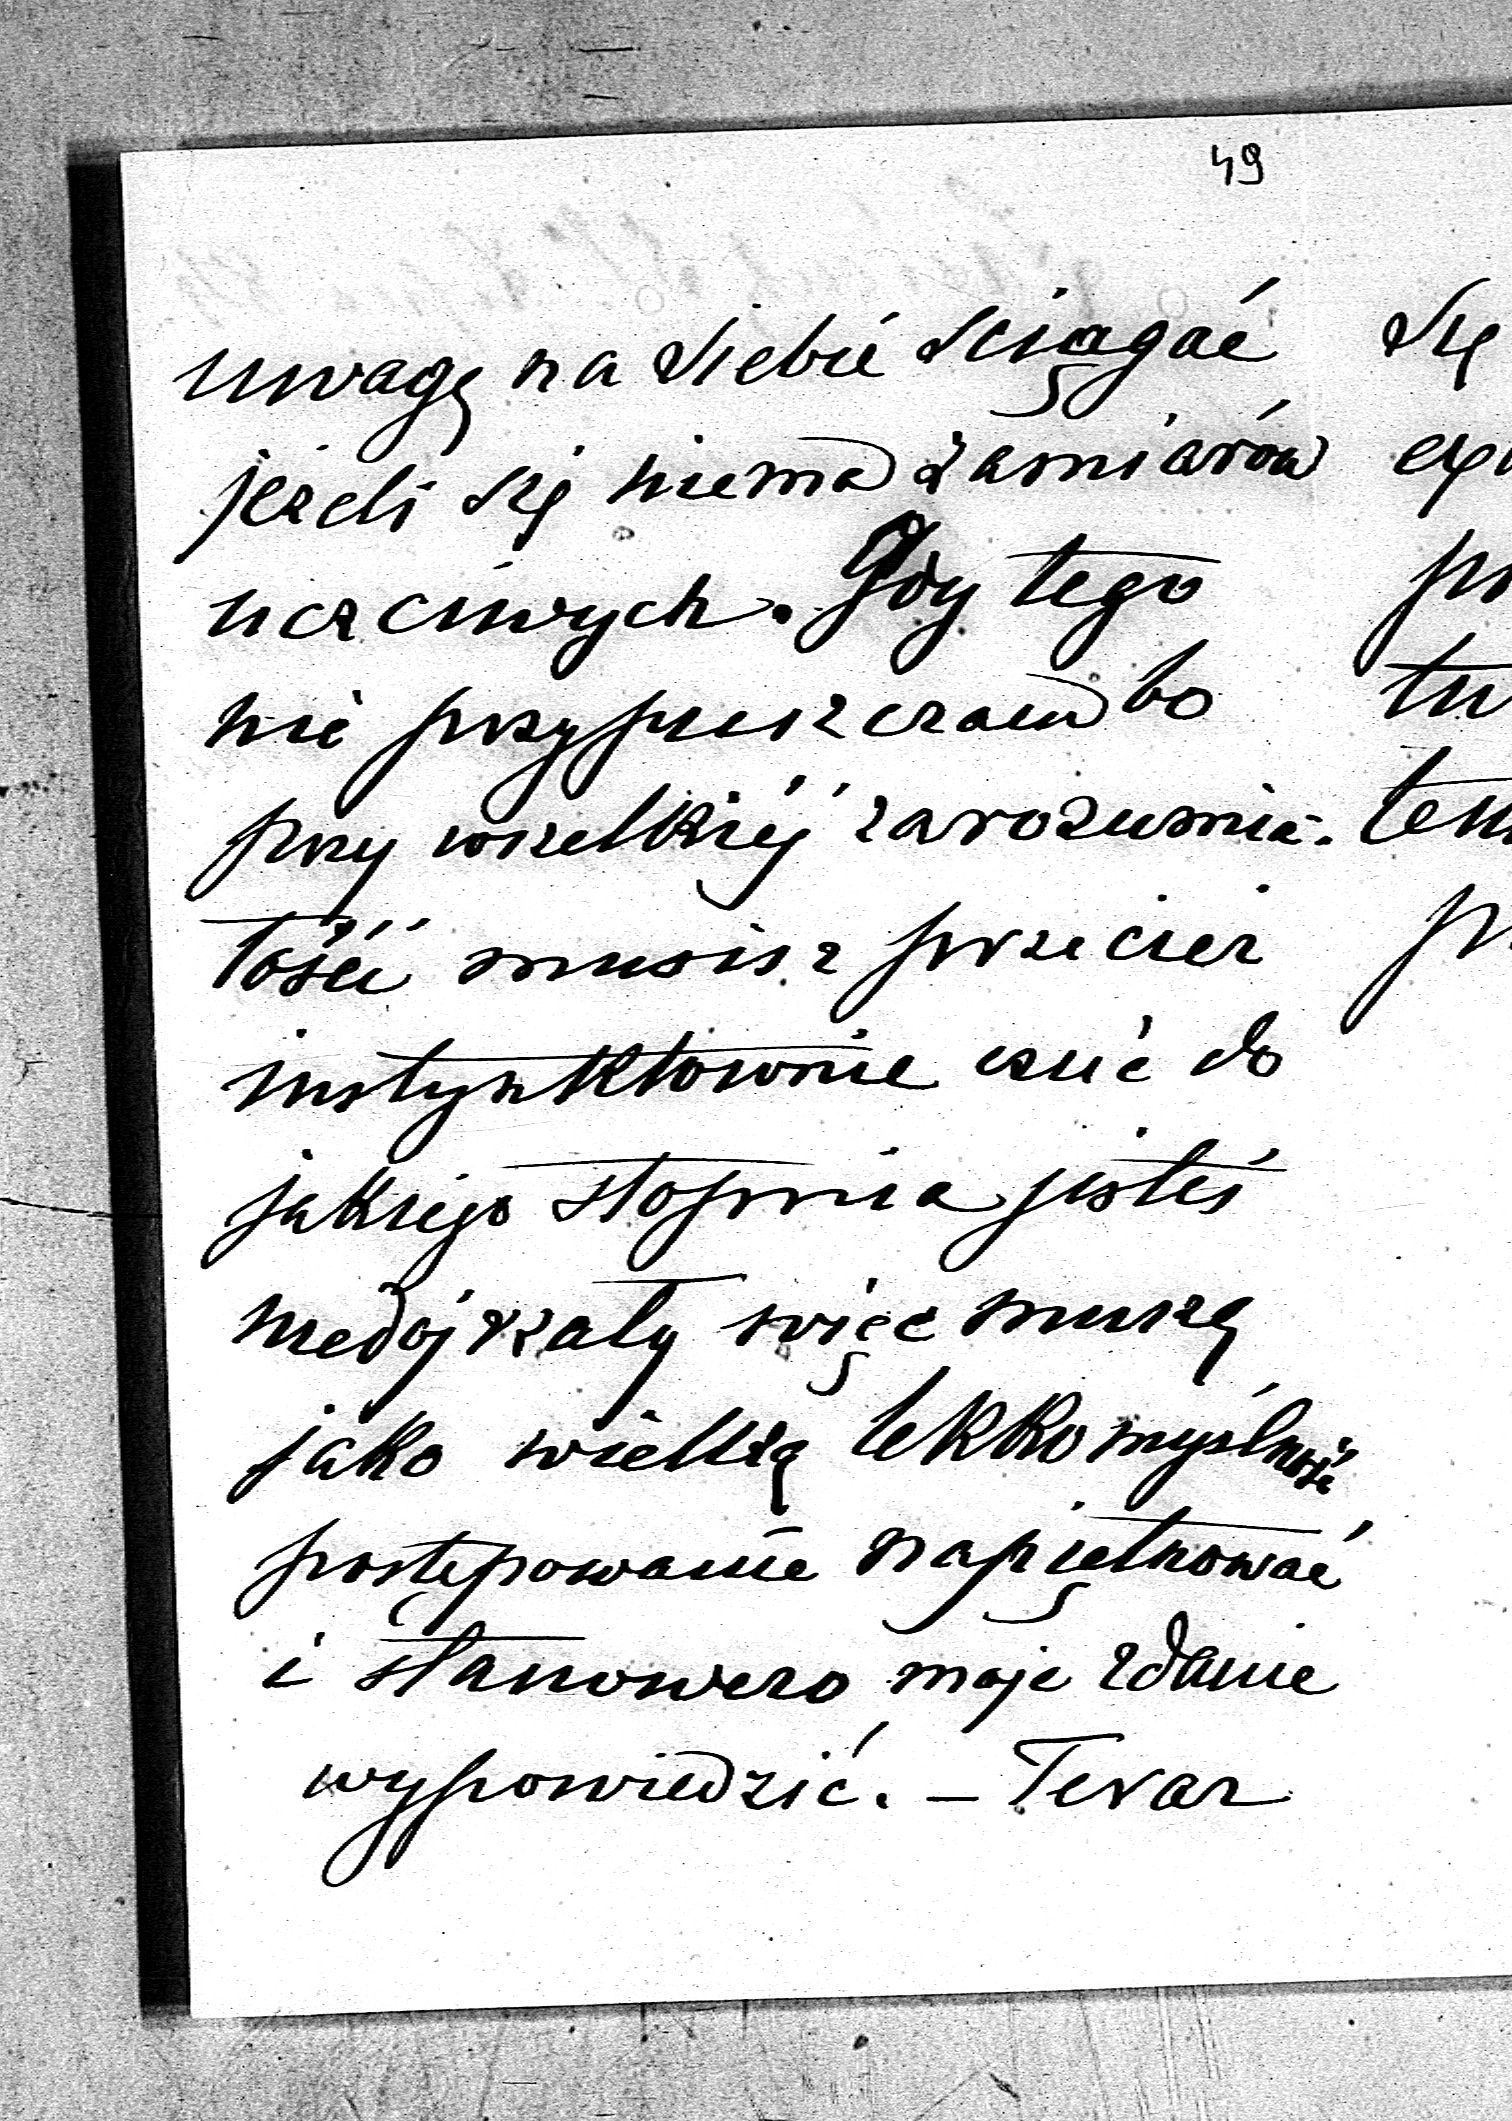 49
uwagę na siebie ściągać
jeżeli się niema zamiarów
uczciwych. Gdy tego
nie przypuszczam bo
przy wszelkiéj zarozumia-
łości musisz przecież
instynktownie czuć do
jakiego stopnia jesteś
niedojrzały więc muszę
jako wielką lekkomyślność
postępowanie napiętnować
i stanowczo moje zdanie
wypowiedzić. – Teraz
się
tu